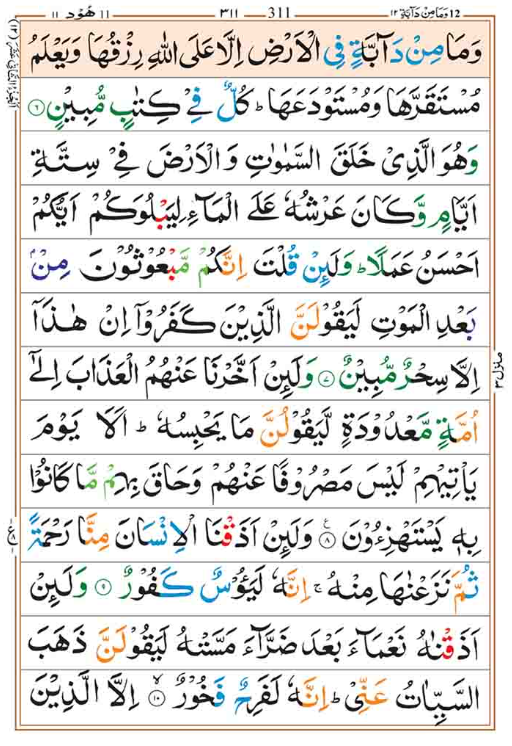 12 وَمَامِنْ دَآبَّة ١٢ 311 ٣١١ هُوْد ١١ 11
وَمَا مِنْ دَآبَّةٍ فِى الْاَرْضِ اِلَّا عَلَى اللّٰهِ رِزْقُهَا وَيَعْلَمُ
مُسْتَقَرَّهَا وَمُسْتَوْدَعَهَا ؕ كُلٌّ فِىْ كِتٰبٍ مُّبِيْنٍ ۝۶
وَهُوَ الَّذِىْ خَلَقَ السَّمٰوٰتِ وَالْاَرْضَ فِىْ سِتَّةِ
اَيَّامٍ وَّكَانَ عَرْشُهٗ عَلَى الْمَآءِ لِيَبْلُوَكُمْ اَيُّكُمْ
اَحْسَنُ عَمَلًا ؕ وَلَئِنْ قُلْتَ اِنَّكُمْ مَّبْعُوْثُوْنَ مِنْۢ
بَعْدِ الْمَوْتِ لَيَقُوْلَنَّ الَّذِيْنَ كَفَرُوْۤا اِنْ هٰذَاۤ
اِلَّا سِحْرٌ مُّبِيْنٌ ۝۷ وَلَئِنْ اَخَّرْنَا عَنْهُمُ الْعَذَابَ اِلٰٓى
اُمَّةٍ مَّعْدُوْدَةٍ لَّيَقُوْلُنَّ مَا يَحْبِسُهٗ ؕ اَلَا يَوْمَ
يَاْتِيْهِمْ لَيْسَ مَصْرُوْفًا عَنْهُمْ وَحَاقَ بِهِمْ مَّا كَانُوْا
بِهٖ يَسْتَهْزِءُوْنَ ۝۸ وَلَئِنْ اَذَقْنَا الْاِنْسَانَ مِنَّا رَحْمَةً
ثُمَّ نَزَعْنٰهَا مِنْهُ ۚ اِنَّهٗ لَيَئُوْسٌ كَفُوْرٌ ۝۹ وَلَئِنْ
اَذَقْنٰهُ نَعْمَآءَ بَعْدَ ضَرَّآءَ مَسَّتْهُ لَيَقُوْلَنَّ ذَهَبَ
السَّيِّاٰتُ عَنِّىْ ؕ اِنَّهٗ لَفَرِحٌ فَخُوْرٌ ۝۱۰ اِلَّا الَّذِيْنَ
منزل ۳